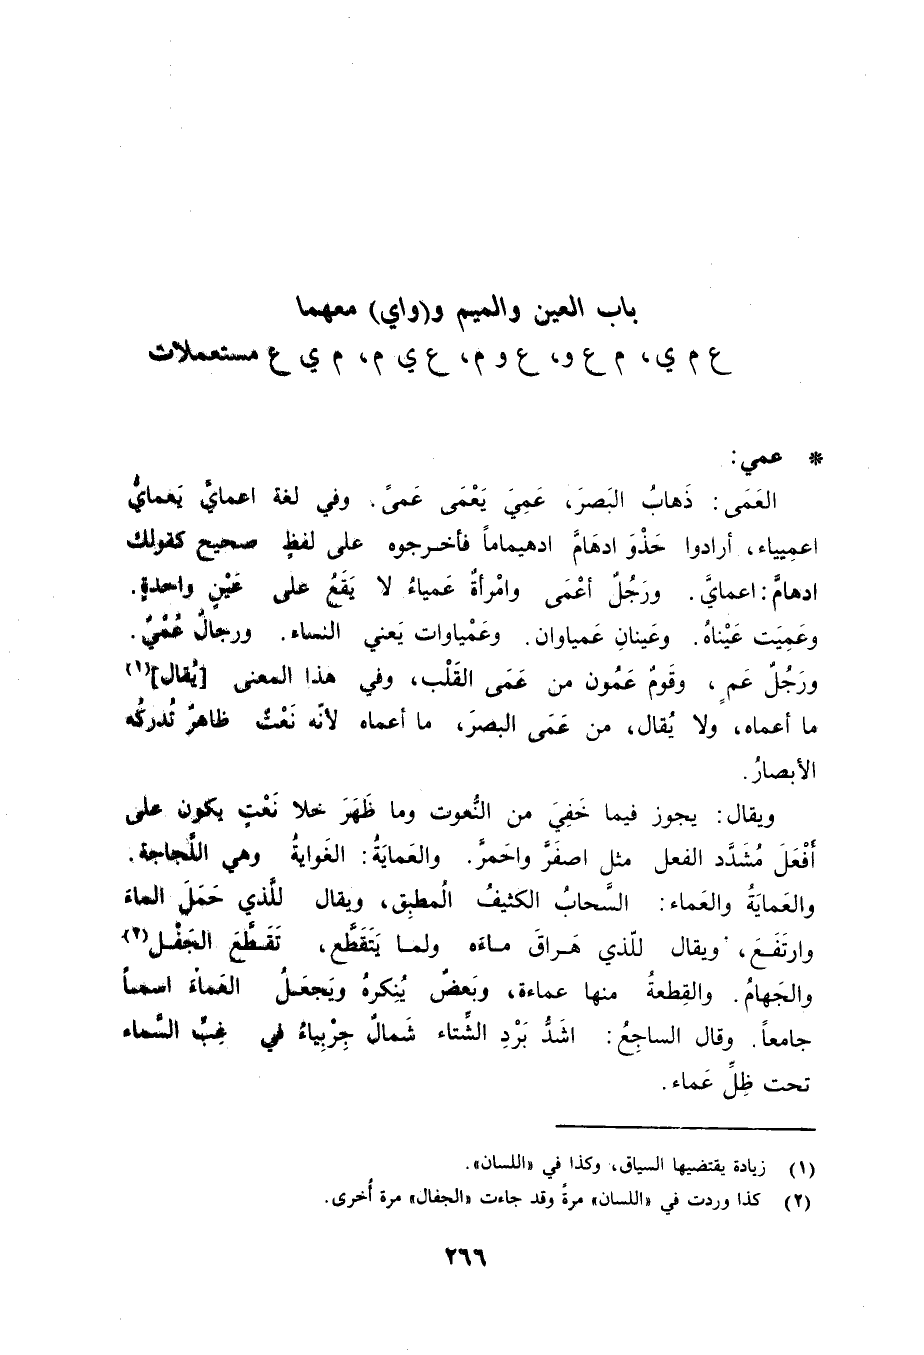 باب العين والميم و(واي) معهما
ع م ي، م ع و، ع و م، ع ي م، م ي ع مستعملات
* عمي:
العَمَى: ذَهابُ البَصرَ، عَمِيَ يَعْمَى عَمىً. وفي لغة اعمايَّ يَعمايُّ
اعمِيياء، أرادوا حَذْوَ ادهَامَّ ادهيماماً فأخرجوه على لفظٍ صحيح كقولك
ادهامَّ: اعمايَّ. ورَجُلٌ أعْمَى وامْرأةٌ عَمياءُ لا يَقَعُ على عَيْنٍ واحدةٍ.
وعَمِيَت عَيْناهُ. وعَينانِ عَمياوان. وعَمْياوات يَعني النساء. ورجالٌ عُمْيٌ.
ورَجُلٌ عَمٍ، وقَومٌ عَمُون من عَمَى القَلْب، وفي هذا المعنى [يُقال](١)
ما أعماه، ولا يُقال، من عَمَى البصرَ، ما أعماه لأنّه نَعْتٌ ظاهرٌ تُدركُه
الأبصارُ.
ويقال: يجوز فيما خَفِيَ من النُّعوت وما ظَهَرَ خلا نَعْتٍ يكون على
أَفْعَلَ مُشَدَّد الفعل مثل اصفَرَّ واحَمرَّ. والعَمايَةُ: الغَوايةُ وهي اللَّجاجة.
والعَمايَةُ والعَماء: السَّحابُ الكثيفُ المُطبِق، ويقال للَّذي حَمَلَ الماءَ
وارتَفَعَ، ويقال للّذي هَراقَ ماءَه ولما يَتَقَطَّع، تَقَطَّعَ الجَفْل(٢)
والجَهامُ. والقِطعةُ منها عماءة، وبَعضٌ يُنِكرهُ ويَجعَلُ العَماءَ اسماً
جامعاً. وقال الساجِعُ: اشَدُّ بَرْدِ الشِّتاء شَمالٌ جِرْبِياءُ في غِبِّ السَّماء
تحت ظِلِّ عَماء.
(١) زيادة يقتضيها السياق، وكذا في «اللسان».
(٢) كذا وردت في «اللسان» مرةً وقد جاءت «الجفال» مرة أُخرى.
٢٦٦